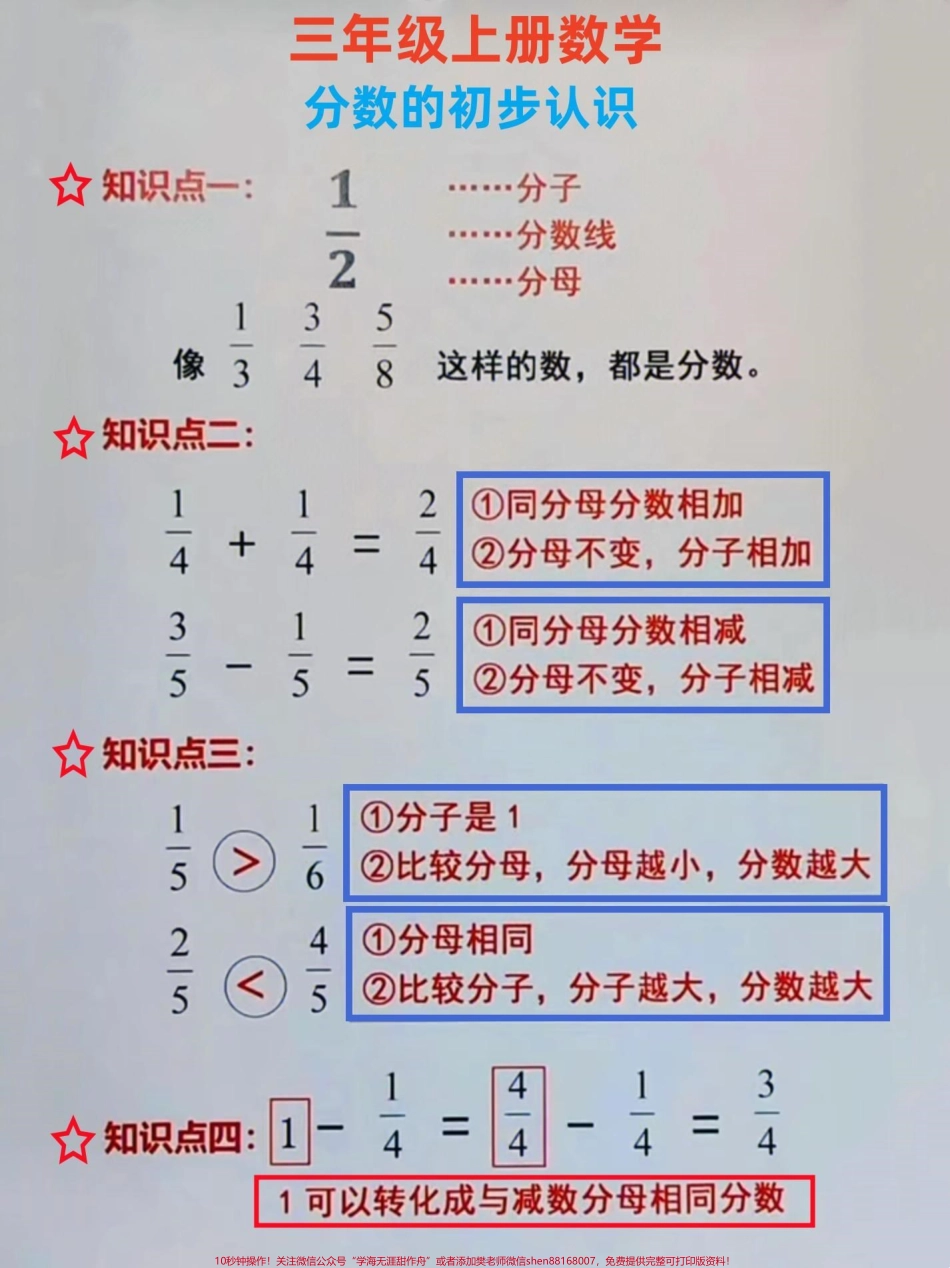 三年级上册数学
分数的初步认识
知识点一： 1/2 ……分子
……分数线
……分母
像 1/3 3/4 5/8 这样的数，都是分数。
知识点二：
1/4 + 1/4 = 2/4 ①同分母分数相加
②分母不变，分子相加
3/5 － 1/5 = 2/5 ①同分母分数相减
②分母不变，分子相减
知识点三：
1/5 > 1/6 ①分子是1
②比较分母，分母越小，分数越大
2/5 < 4/5 ①分母相同
②比较分子，分子越大，分数越大
知识点四： 1 － 1/4 = 4/4 － 1/4 = 3/4
1可以转化成与减数分母相同分数
10秒钟操作！关注微信公众号“学海无涯甜作舟”或者添加樊老师微信shen88168007，免费提供完整可打印版资料！